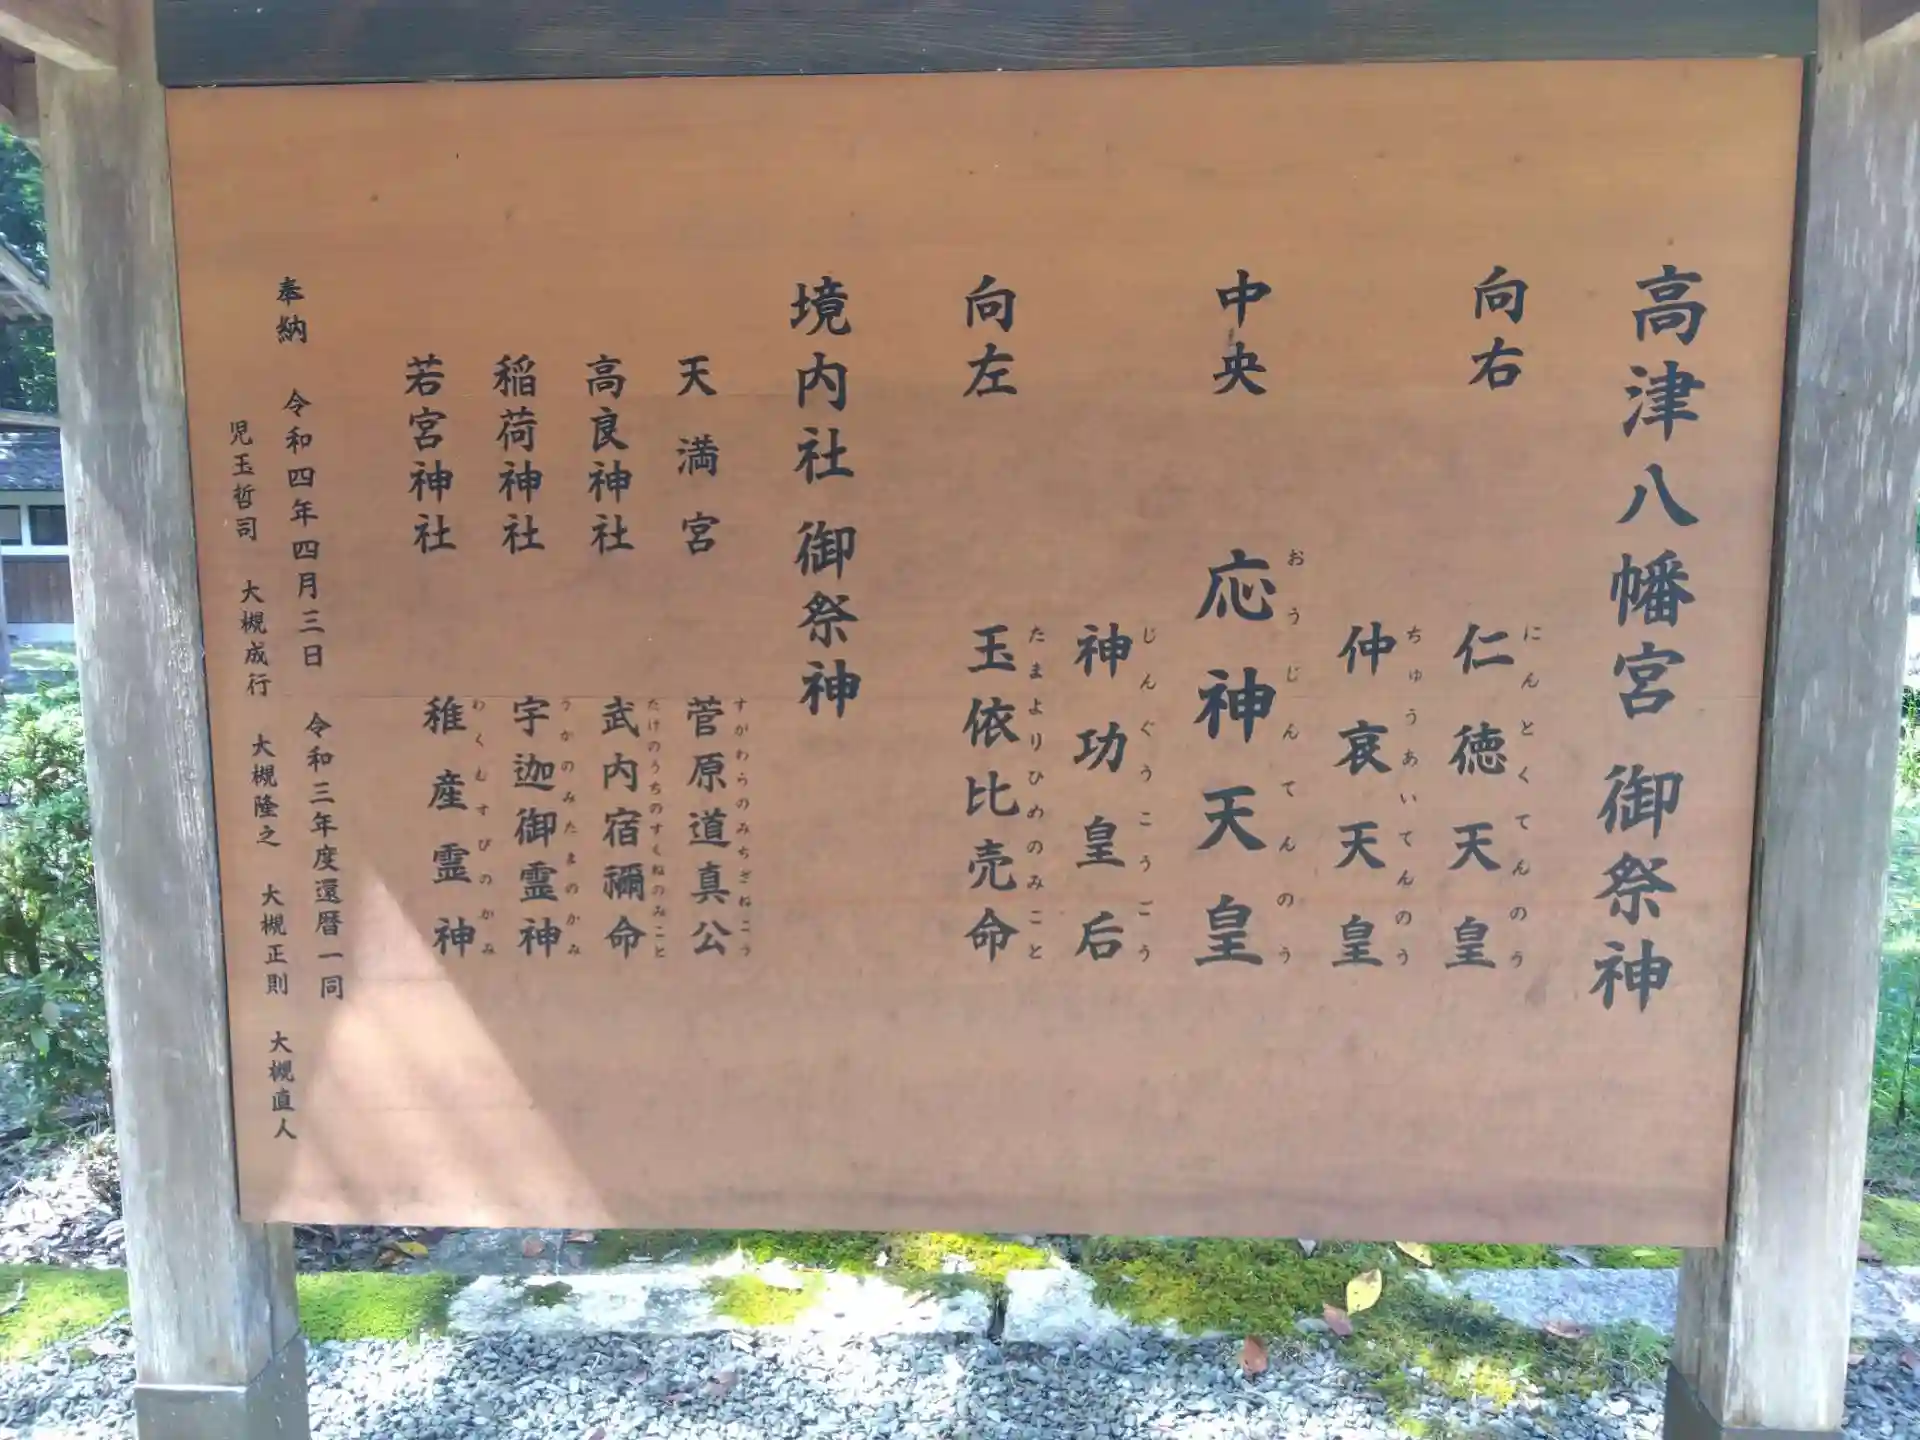 高津八幡宮 御祭神
向右 仁徳天皇
にんとくてんのう
仲哀天皇
ちゅうあいてんのう
中央 応神天皇
おうじんてんのう
神功皇后
じんぐうこうごう
向左 玉依比売命
たまよりひめのみこと
境内社 御祭神
天満宮 菅原道真公
すがわらのみちざねこう
高良神社 武内宿禰命
たけのうちのすくねのみこと
稲荷神社 宇迦御霊神
うかのみたまのかみ
若宮神社 稚産霊神
わくむすびのかみ
奉納 令和四年四月三日 令和三年度還暦一同
児玉哲司 大槻成行 大槻隆之 大槻正則 大槻直人